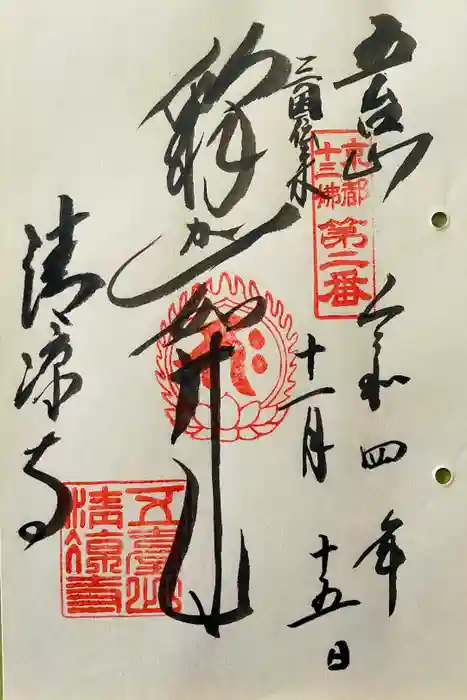 五台山
京都
十三佛
第二番
令和四年
十一月十五日
三国伝来
釈迦如来
清凉寺
五臺山
清凉寺